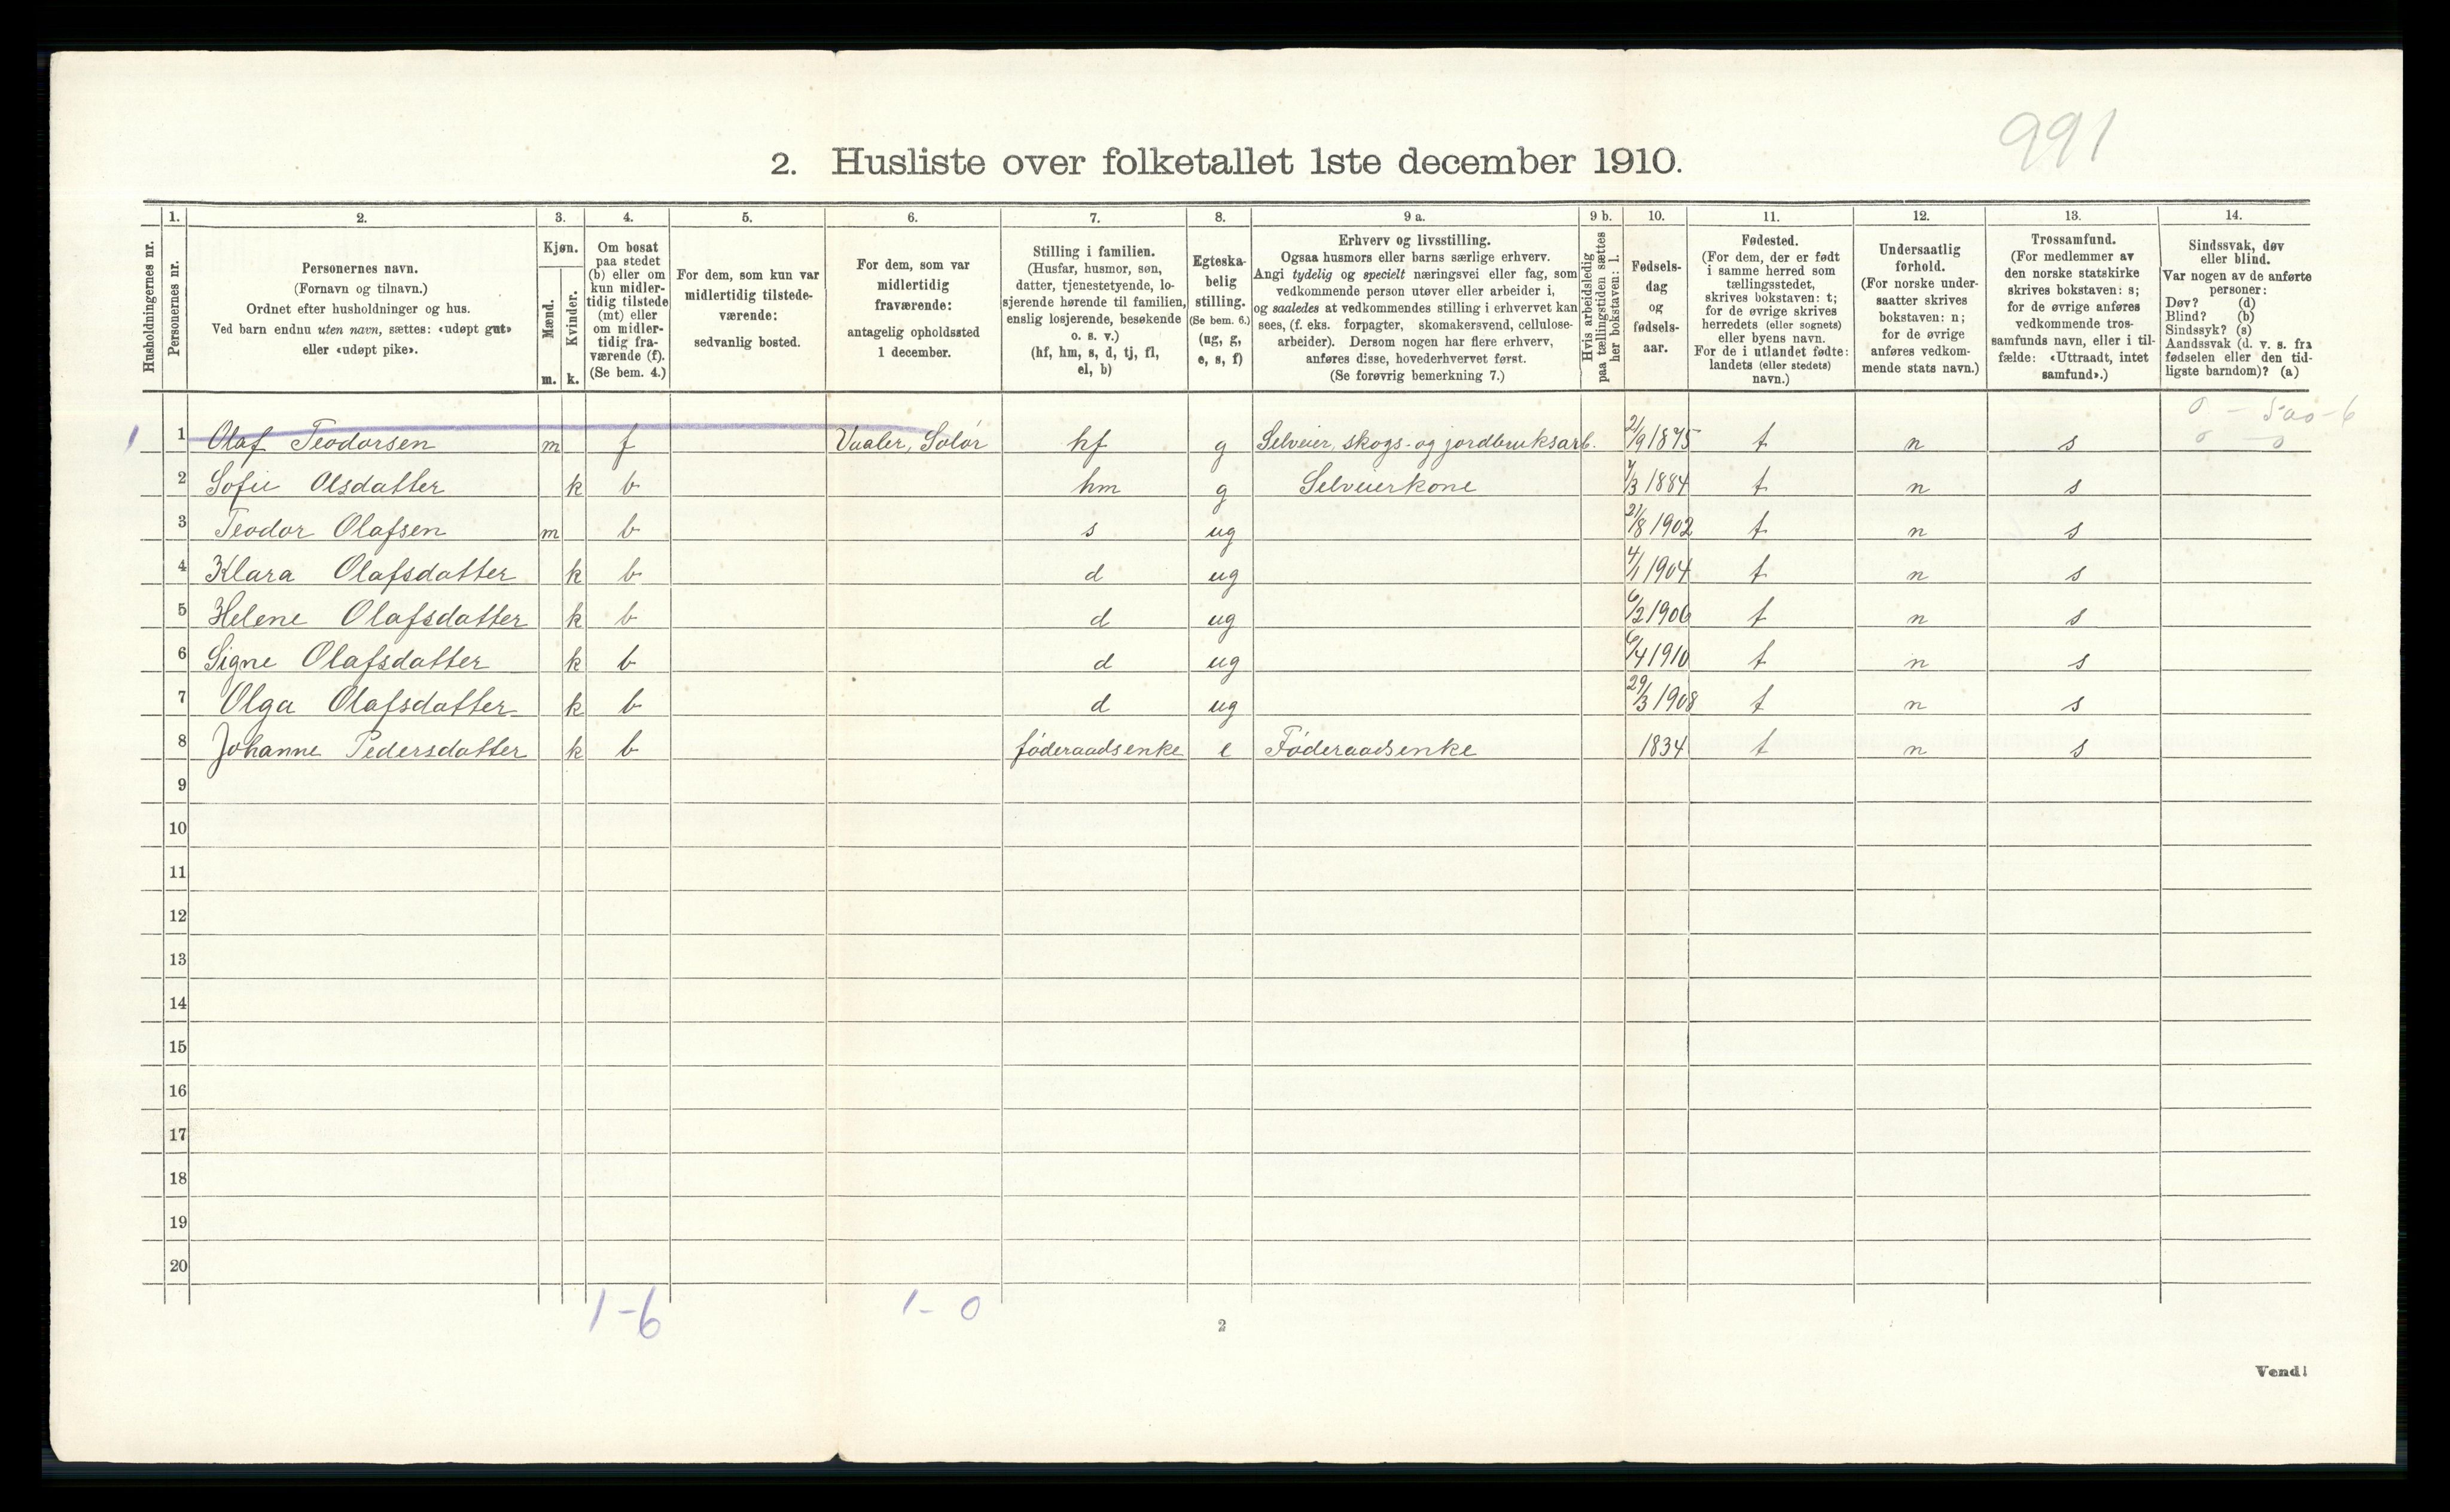 991
2. Husliste over folketallet 1ste december 1910.
Husholdningernes nr.
1. Personernes nr.
2. Personernes navn.
(Fornavn og tilnavn.)
Ordnet efter husholdninger og hus.
Ved barn endnu uten navn, sættes: «udøpt gut»
eller «udøpt pike».
3. Kjøn.
Mænd. m.
Kvinder. k.
4. Om bosat
paa stedet
(b) eller om
kun midler-
tidig tilstede
(mt) eller
om midler-
tidig fra-
værende (f).
(Se bem. 4.)
5. For dem, som kun var
midlertidig tilstede-
værende:
sedvanlig bosted.
6. For dem, som var
midlertidig
fraværende:
antagelig opholdssted
1 december.
7. Stilling i familien.
(Husfar, husmor, søn,
datter, tjenestetyende, lo-
sjerende hørende til familien,
enslig losjerende, besøkende
o. s. v.)
(hf, hm, s, d, tj, fl,
el, b)
8. Egteska-
belig
stilling.
(Se bem. 6.)
(ug, g,
e, s, f)
9 a. Erhverv og livsstilling.
Ogsaa husmors eller barns særlige erhverv.
Angi tydelig og specielt næringsvei eller fag, som
vedkommende person utøver eller arbeider i,
og saaledes at vedkommendes stilling i erhvervet kan
sees, (f. eks. forpagter, skomakersvend, cellulose-
arbeider). Dersom nogen har flere erhverv,
anføres disse, hovederhvervet først.
(Se forøvrig bemerkning 7.)
9 b. Hvis arbeidsledig
paa tællingstiden sættes
her bokstaven: l.
10. Fødsels-
dag
og
fødsels-
aar.
11. Fødested.
(For dem, der er født
i samme herred som
tællingsstedet,
skrives bokstaven: t;
for de øvrige skrives
herredets (eller sognets)
eller byens navn.
For de i utlandet fødte:
landets (eller stedets)
navn.)
12. Undersaatlig
forhold.
(For norske under-
saatter skrives
bokstaven: n;
for de øvrige
anføres vedkom-
mende stats navn.)
13. Trossamfund.
(For medlemmer av
den norske statskirke
skrives bokstaven: s;
for de øvrige anføres
vedkommende tros-
samfunds navn, eller i til-
fælde: «Uttraadt, intet
samfund».)
14. Sindssvak, døv
eller blind.
Var nogen av de anførte
personer:
Døv? (d)
Blind? (b)
Sindssyk? (s)
Aandssvak (d. v. s. fra
fødselen eller den tid-
ligste barndom)? (a)
1 1 Olaf Teodorsen m f Vaaler, Solør hf g Selveier, skogs- og jordbruksarb. 21/9 1875 t n s
2 Sofie Olsdatter k b hm g Selveierkone 7/3 1884 t n s
3 Teodor Olafsen m b s ug 21/8 1902 t n s
4 Klara Olafsdatter k b d ug 4/1 1904 t n s
5 Helene Olafsdatter k b d ug 6/2 1906 t n s
6 Signe Olafsdatter k b d ug 6/4 1910 t n s
7 Olga Olafsdatter k b d ug 29/3 1908 t n s
8 Johanne Pedersdatter k b føderaadsenke e Føderaadsenke 1834 t n s
9
10
11
12
13
14
15
16
17
18
19
20
1-6 1-0
2
Vend!